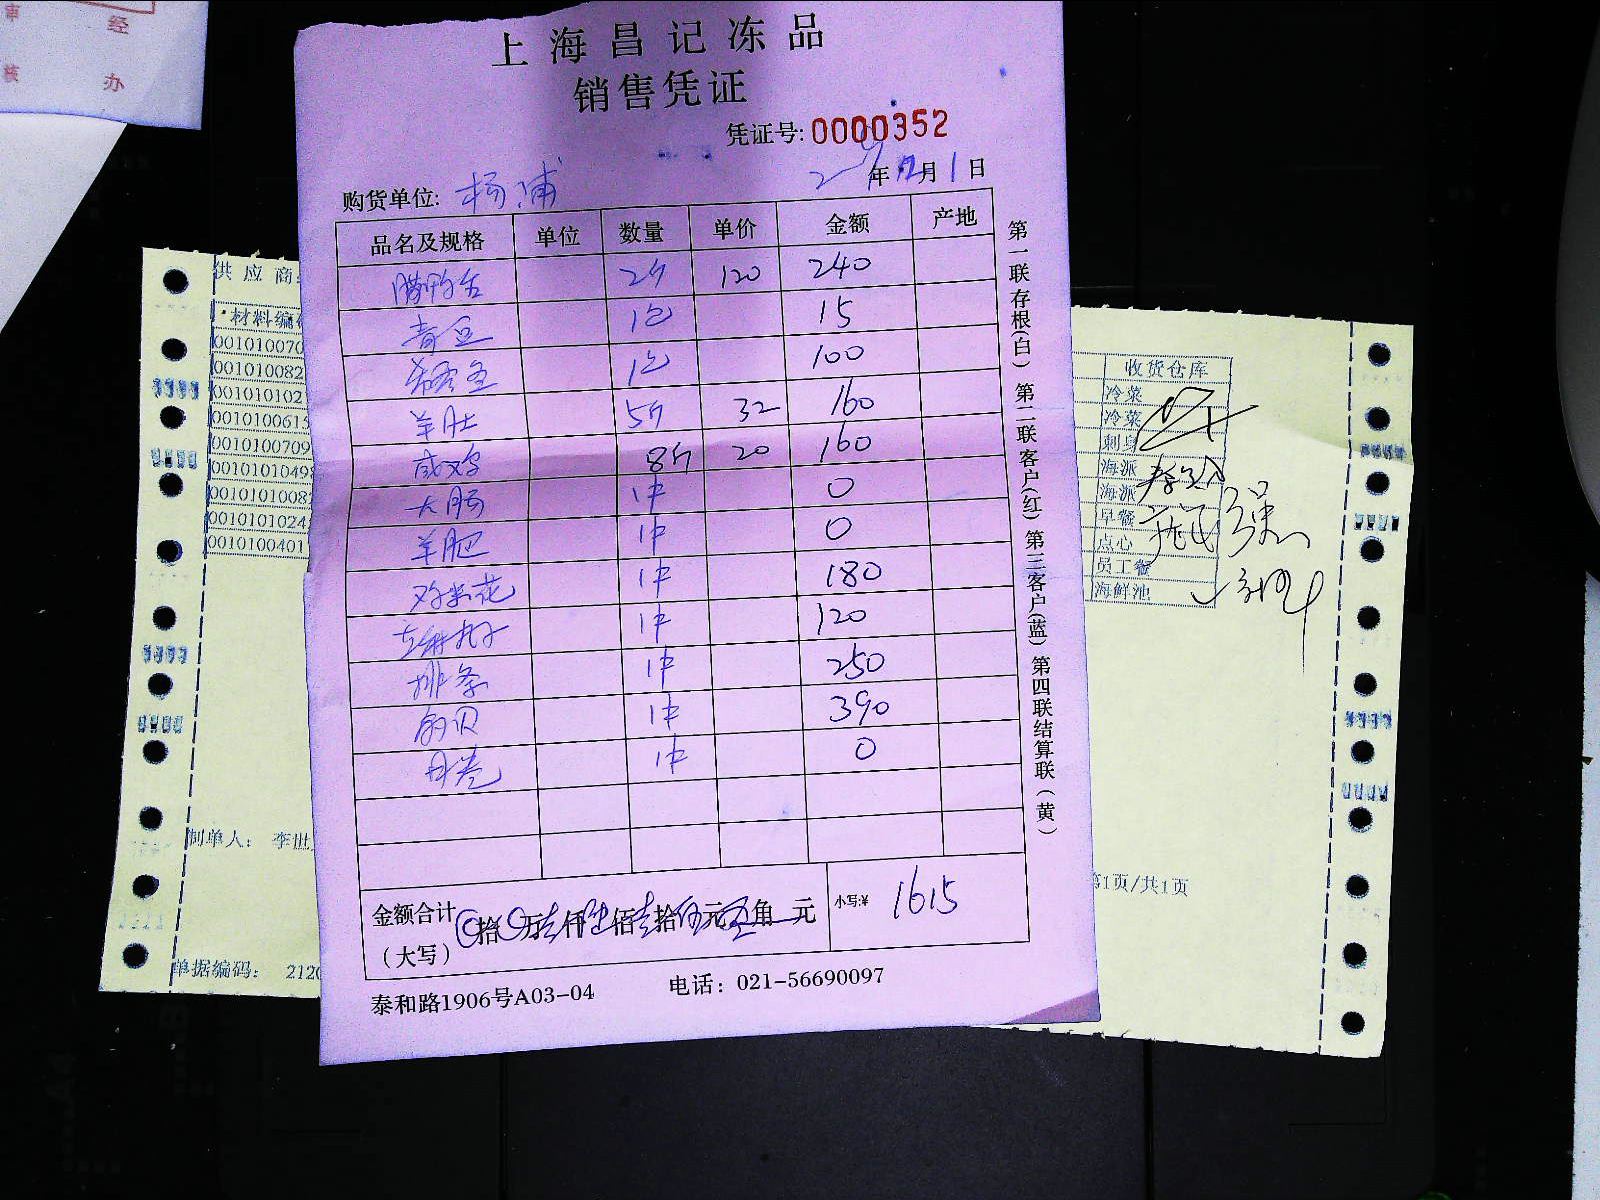 经
办
上海昌记冻品
销售凭证
凭证号: 0000352
年12月1日
购货单位: 杨浦
品名及规格 单位 数量 单价 金额 产地
腊鸭舌 2斤 120 240
青豆 1包 15
1包 100
羊肚 5斤 32 160
咸鸡 8斤 20 160
大肠 1件 0
羊肥 1件 0
鸡米花 1件 180
1件 120
排条 1件 250
1件 390
1件 0
金额合计 拾 万 仟 佰 拾 元 角 元
(大写)
小写:¥ 1615
泰和路1906号A03-04 电话: 021-56690097
第一联存根(白) 第二联客户(红) 第三客户(蓝) 第四联结算联(黄)
供应商:
材料编
001010070
001010082
001010102
0010100615
0010100709
00101010498
0010101008
0010101024
0010100401
制单人: 李世
单据编码: 212
收货仓库
冷菜
冷菜
刺身
海派
海派
早餐
点心
员工餐
海鲜池
第1页/共1页